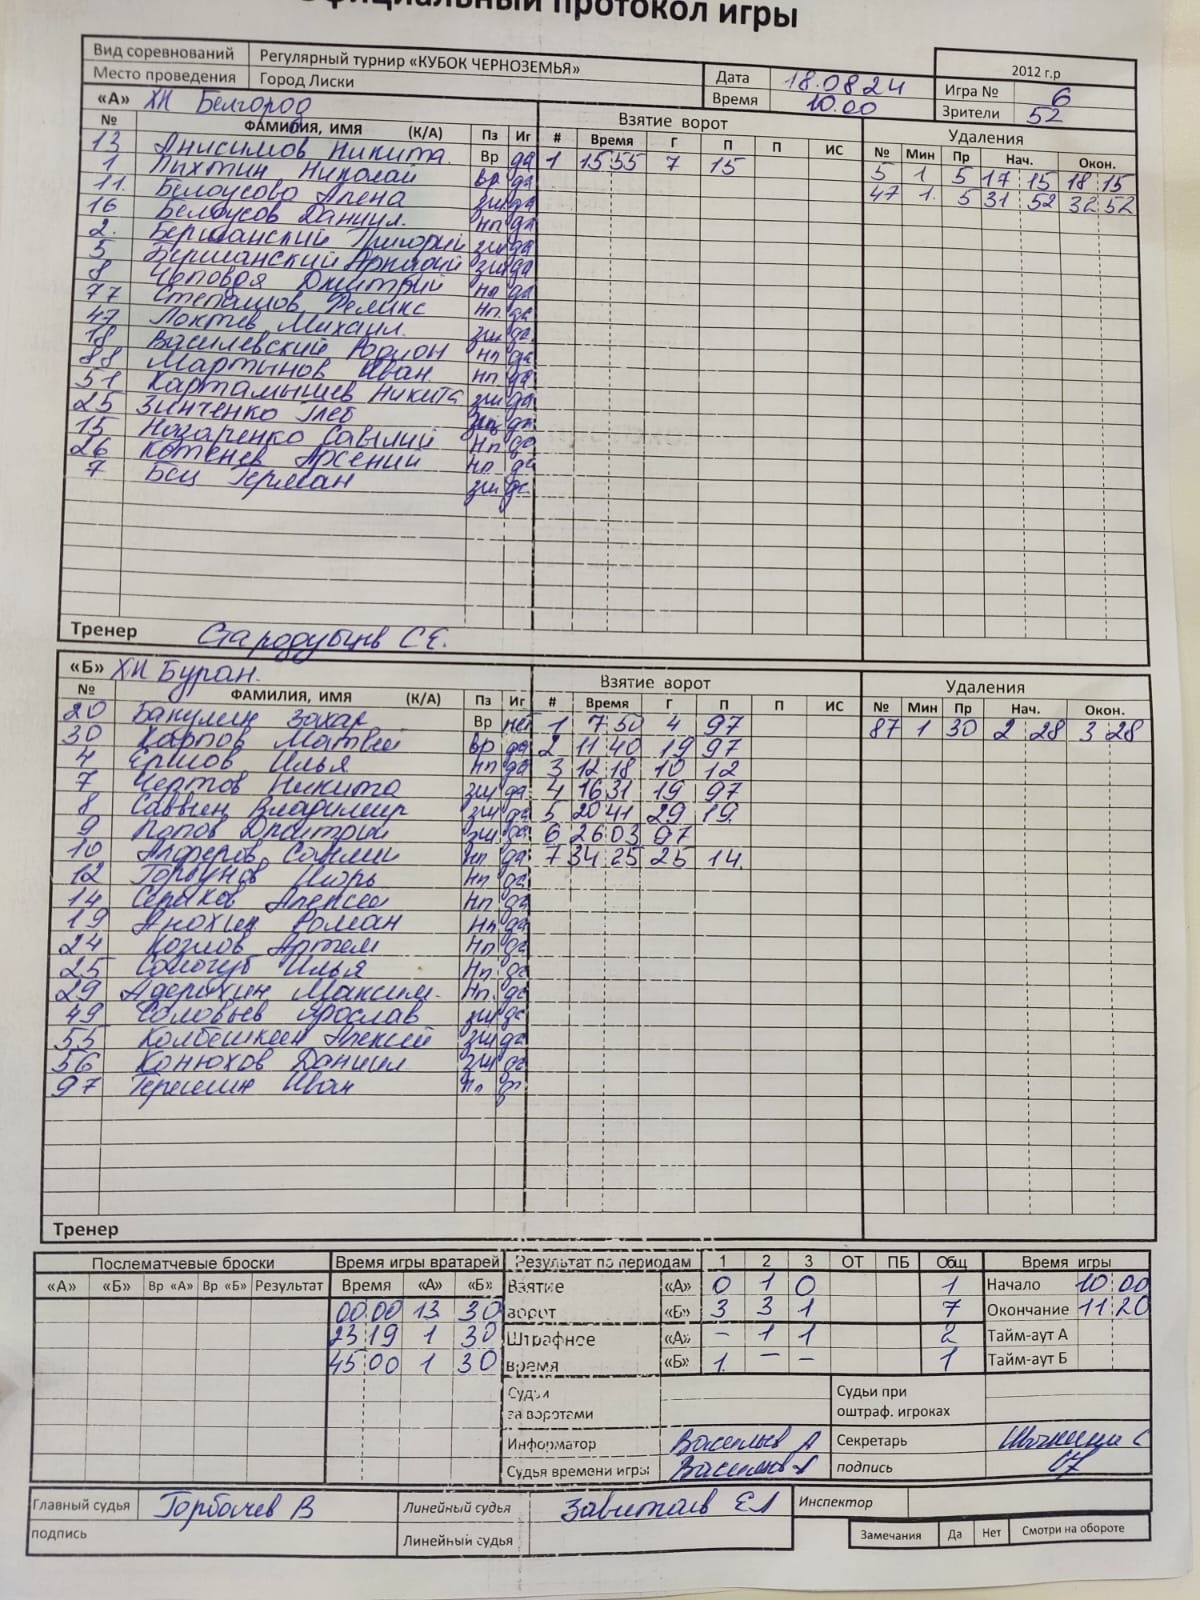 Официальный протокол игры
Вид соревнований Регулярный турнир «КУБОК ЧЕРНОЗЕМЬЯ» 2012 г.р
Место проведения Город Лиски Дата 18.08 24 Игра № 6
«А» ХК Белгород Время 10.00 Зрители 52
№ ФАМИЛИЯ, ИМЯ (К/А) Пз Иг Взятие ворот Удаления
# Время Г П П ИС № Мин Пр Нач. Окон.
13 Анисимов Никита. Вр да 1 15 55 7 15 5 1 5 17 15 18 15
1 Пыхтин Николай вр да 47 1. 5 31 52 32 52
11. Белоусова Алена зщ да
16 Белоусов Даниил. нп да
2. Бершанский Григорий зщ да
5 Бершанский Аркадий зщ да
8 Чаповоя Дмитрий нп да
77 Степашов Феликс нп. да
47 Локтев Михаил. зщ да
18 Василевский Родион нп да
88 Мартынов Иван. нп да
51 Картамышев Никита зщ да
25 Зинченко Глеб да
15 Назаренко Савелий нп да
26 Котенев Арсений нп да
7 Бец Герман зщ да
Тренер Стародубцев С.Е.
«Б» ХК Буран. Взятие ворот Удаления
№ ФАМИЛИЯ, ИМЯ (К/А) Пз Иг # Время Г П П ИС № Мин Пр Нач. Окон.
20 Бакулин Захар Вр нет 1 7 50 4 97 87 1 30 2 28 3 28
30 Карпов Матвей вр да 2 11 40 19 97
4 Ершов Илья нп да 3 12 18 10 12
7 Чертов Никита зщ да 4 16 31 19 97
8 Саввин Владимир зщ да 5 20 41 29 19.
9 Попов Дмитрий зщ да 6 26 03 97
10 Алферов Самлии нп да 7 34 25 25 14.
12 Горбунов Игорь нп да
14 Серяков Алексей нп да
19 Анохин Роман нп да
24 Козлов Артем нп да
25 Сологуб Илья нп да
29 Адерихин Максим. нп. да
49 Соловьев Ярослав зщ да
55 Колбешкин Алексей зщ да
56 Конюхов Даниил зщ да
97 Терешин Иван нп
Тренер
Послематчевые броски Время игры вратарей Результат по периодам 1 2 3 ОТ ПБ Общ Время игры
«А» «Б» Вр «А» Вр «Б» Результат Время «А» «Б» Взятие «А» 0 1 0 1 Начало 10 00
00 00 13 30 ворот «Б» 3 3 1 7 Окончание 11 20
23 19 1 30 Штрафное «А» - 1 1 2 Тайм-аут А
45 00 1 30 время «Б» 1. - - 1 Тайм-аут Б
Судьи за воротами Судьи при оштраф. игроках
Информатор Васильев А Секретарь
Судья времени игры: Васильев А подпись
Главный судья Горбачев В Линейный судья Завитаев ЕЛ Инспектор
подпись Линейный судья Замечания Да Нет Смотри на обороте